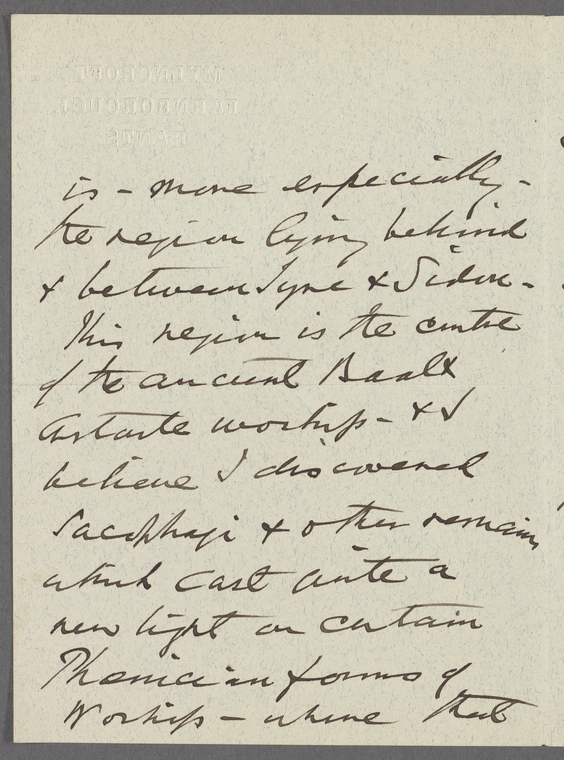 is - more especially -
the region lying behind
& between Tyre & Sidon -
This region is the centre
of the ancient Baal &
Astarte worship - & I
believe I discovered
Sacophagi & other remains
which cast quite a
new light on certain
Phenician forms of
Worship - where that